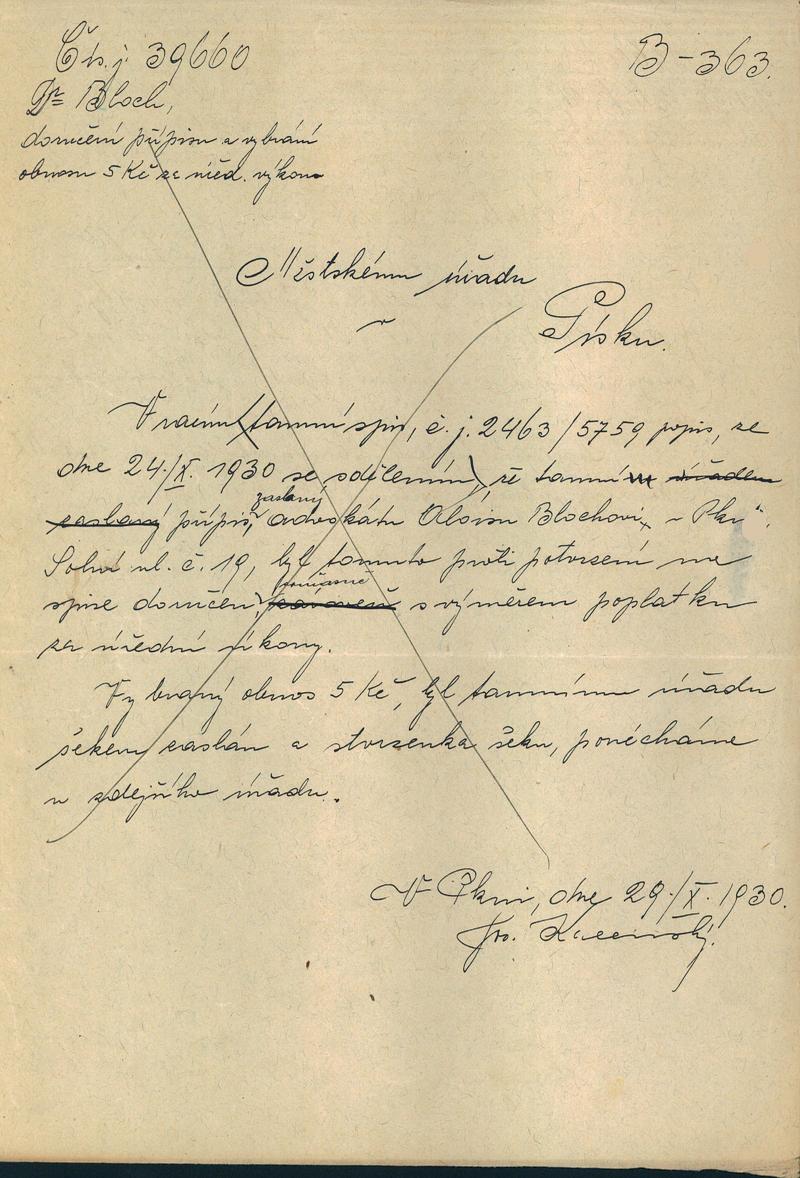 Čís. j. 39660
B-363.
Dr Bloch,
doručení přípisu a vybrání
obnosu 5 Kč za úřed. výkon
Městskému úřadu
v
Písku.
Vracím tamní spis, č. j. 2463/5759 popis, ze
dne 24./X. 1930 se sdělením, že tamním úřadem
zaslaný
zaslaný přípis, advokátu Aloisu Blochovi, v Pkn
Solní ul. č. 19, byl tomuto proti potvrzení na
současně
spise doručen, s výměrem poplatku
za úřední úkony.
Vybraný obnos 5 Kč, byl tamnímu úřadu
šekem zaslán a stvrzenka šeku, ponécháme
u zdejšího úřadu.
V Pkni, dne 29./X. 1930.